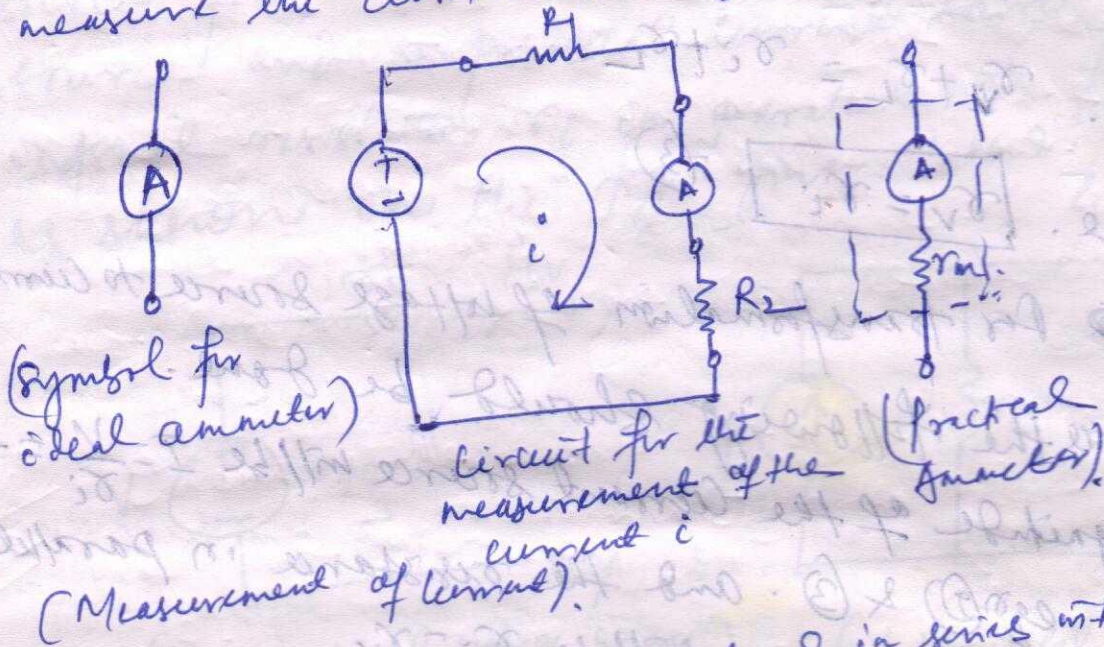 measure the
R1
A
+
-
i
A
R2
A
rm
(Symbol for
ideal ammeter)
Circuit for the
measurement of the
current i
(Practical
Ammeter).
(Measurement of Current).
in series